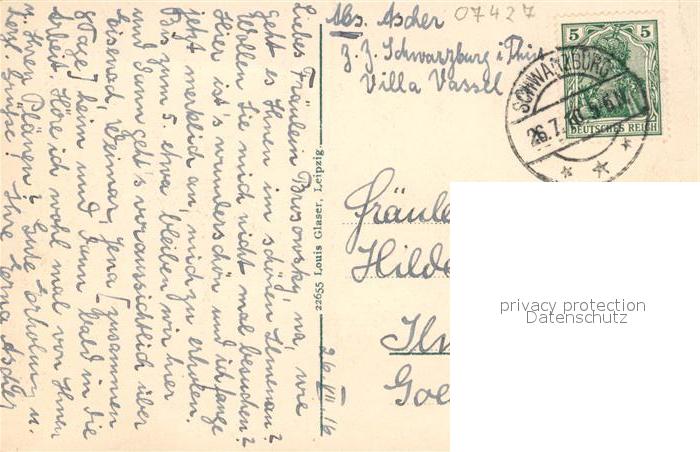 Abs. Ascher
07427
z. Z. Schwarzburg i. Thür
Villa Vassel
5 5
DEUTSCHES REICH
SCHWARZBURG
26.7.10.5-6N
Liebes Fräulein Brosowsky, na, wie
geht es Ihnen im schönen Ilmenau?
Wollen Sie mich nicht mal besuchen?
Hier ist's wunderschön und ich fange
jetzt merklich an, mich zu erholen.
Bis zum 5. etwa bleiben wir hier
und dann geht's voraussichtlich über
Eisenach, Weimar, Jena (zusammen
8 Tage) heim und dann bald in die
Arbeit. Höre ich wohl mal von Ihnen
u. Ihren Plänen? Gute Erholung u.
herzl. Grüsse! Ihre Erna Ascher
22655 Louis Glaser, Leipzig.
26. VII. 16
Fräule
Hilde
Ilm
Goe
privacy protection
Datenschutz